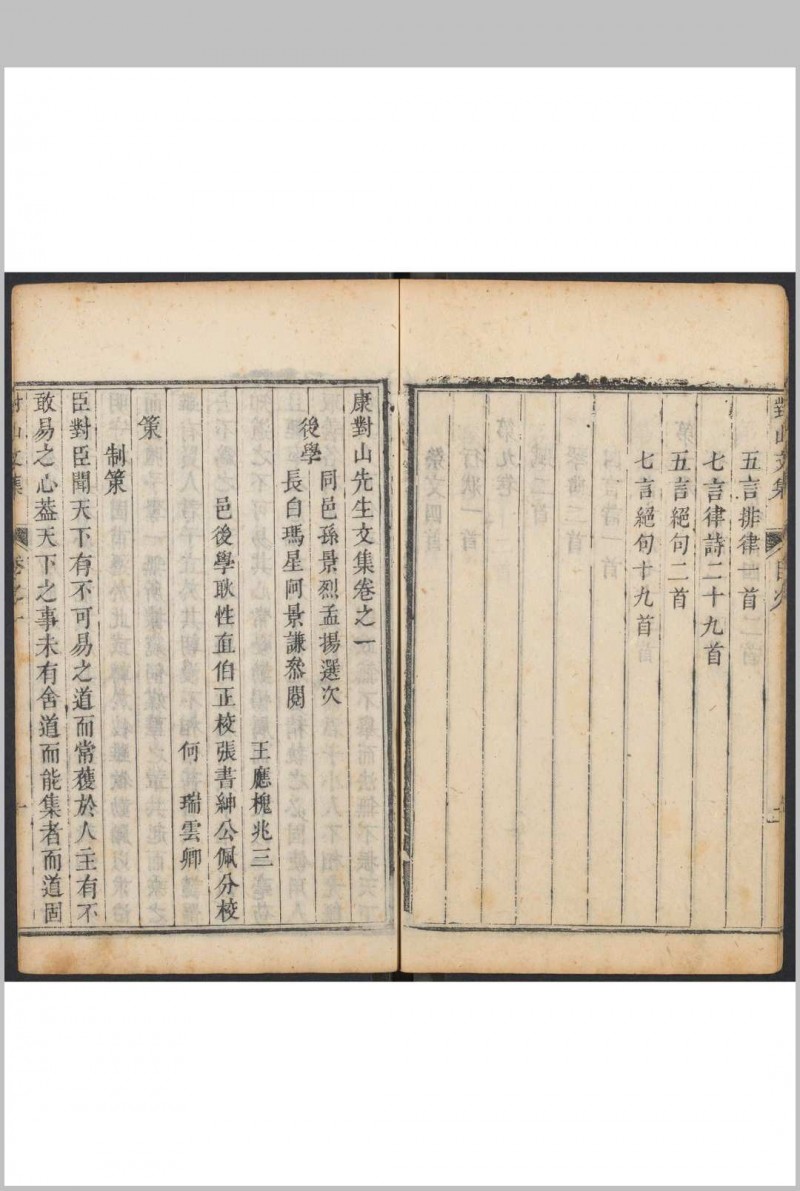 五言排律一首
七言律詩二十九首
五言絕句二首
七言絕句十九首
康對山先生文集卷之一
同邑孫景烈孟揚選次
後學
長白瑪星阿景謙參閱
王應槐兆三
邑後學耿性直伯正校張書紳公佩分校
何 瑞雲卿
策
制策
臣對臣聞天下有不可易之道而常獲於人主有不
敢易之心葢天下之事未有舍道而能集者而道固